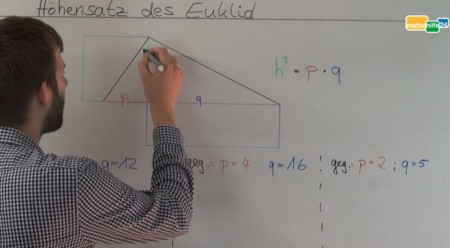 Höhensatz des Euklid
mathehilfe24
h² = p · q
p q
q=12 geg.: p=4 q=16 geg.: p=2 ; q=5